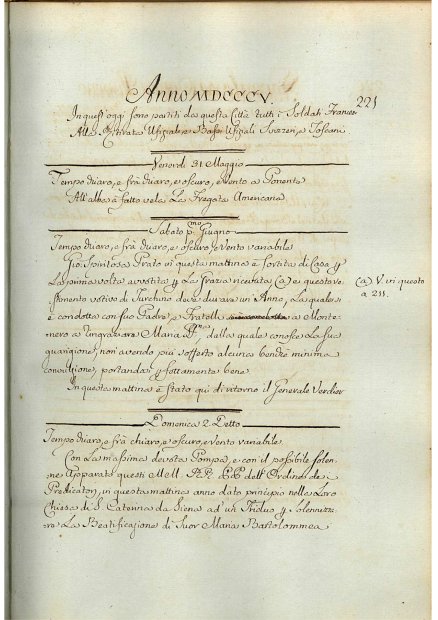 Anno MDCCCV.
221
In quest'oggi sono partiti da questa Città tutti i Soldati Francesi
Alla Ritirata Ufiziali e Bassi Ufiziali Svizzeri, e Toscani
Venerdi 31 Maggio
Tempo chiaro, e frà chiaro, e oscuro, e Vento a Ponente
All'alba è fatto vela La Fregata Americana
Sabato p.mo Giugno
Tempo chiaro, e frà chiaro, e oscuro e Vento variabile
Gio: Spiritosa Prato in questa mattina è sortita di Casa p
La prima volta avvisita p La Grazia ricevuta; (a) e questo ve-
stimento votivo di Turchino deve durare un'Anno, La quale si
(a) V. in questo
a 211.
è condotta con suo Padre, e Fratelli a Monte-
nero a ringraziare Maria SS.ma, dalla quale conosce La sua
guarigione, non avendo più sofferto alcuna benchè minima
convulsione, portandosi p fortamente bene
In questa mattina è stato qui di ritorno il Generale Verdier
Domenica 2 Detto
Tempo chiaro, e frà chiaro, e oscuro, e Vento variabile.
Con La massima decista Pompa, e con il possibile solen-
ne Apparato questi Mell. RR. PP. dell'Ordine de'
Predicatori, in questa mattina anno dato principio nella Loro
Chiesa di S. Caterina da Siena ad un Triduo p Solennizza-
re La Beatificazione di Suor Maria Bartolommea